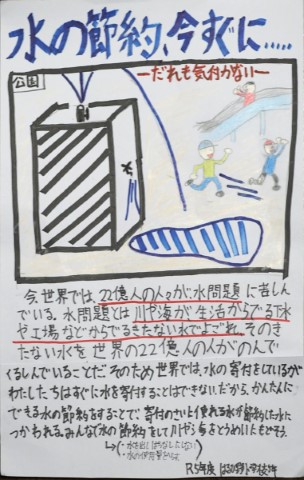 水の節約、今すぐに.....
公園
ーだれも気付かないー
今、世界では、22億人の人々が水問題に苦しん
でいる。水問題とは川や海が生活からでる下水
や工場などからでるきたない水でよごれ、そのき
たない水を世界の22億人の人がのんで
くるしんでいることだ。そのため世界では、水の寄付をしているが
わたしたちはすぐに水を寄付することはできない。だから、かんたんに
できる水の節約をすることで、寄付のさい上使れる水が節約した水に
つかわれる。みんなで水の節約をして川や海をとうめいにもどそう
水を出しっぱなしにしない
R5年度